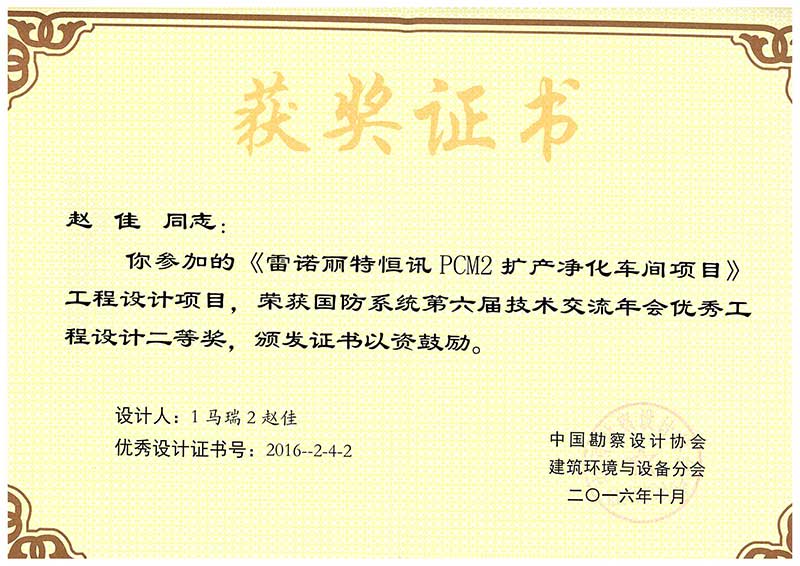 获奖证书
赵 佳 同志：
你参加的《雷诺丽特恒讯 PCM2 扩产净化车间项目》
工程设计项目，荣获国防系统第六届技术交流年会优秀工
程设计二等奖，颁发证书以资鼓励。
设计人：1 马瑞 2 赵佳
优秀设计证书号：2016--2-4-2
中国勘察设计协会
建筑环境与设备分会
二〇一六年十月